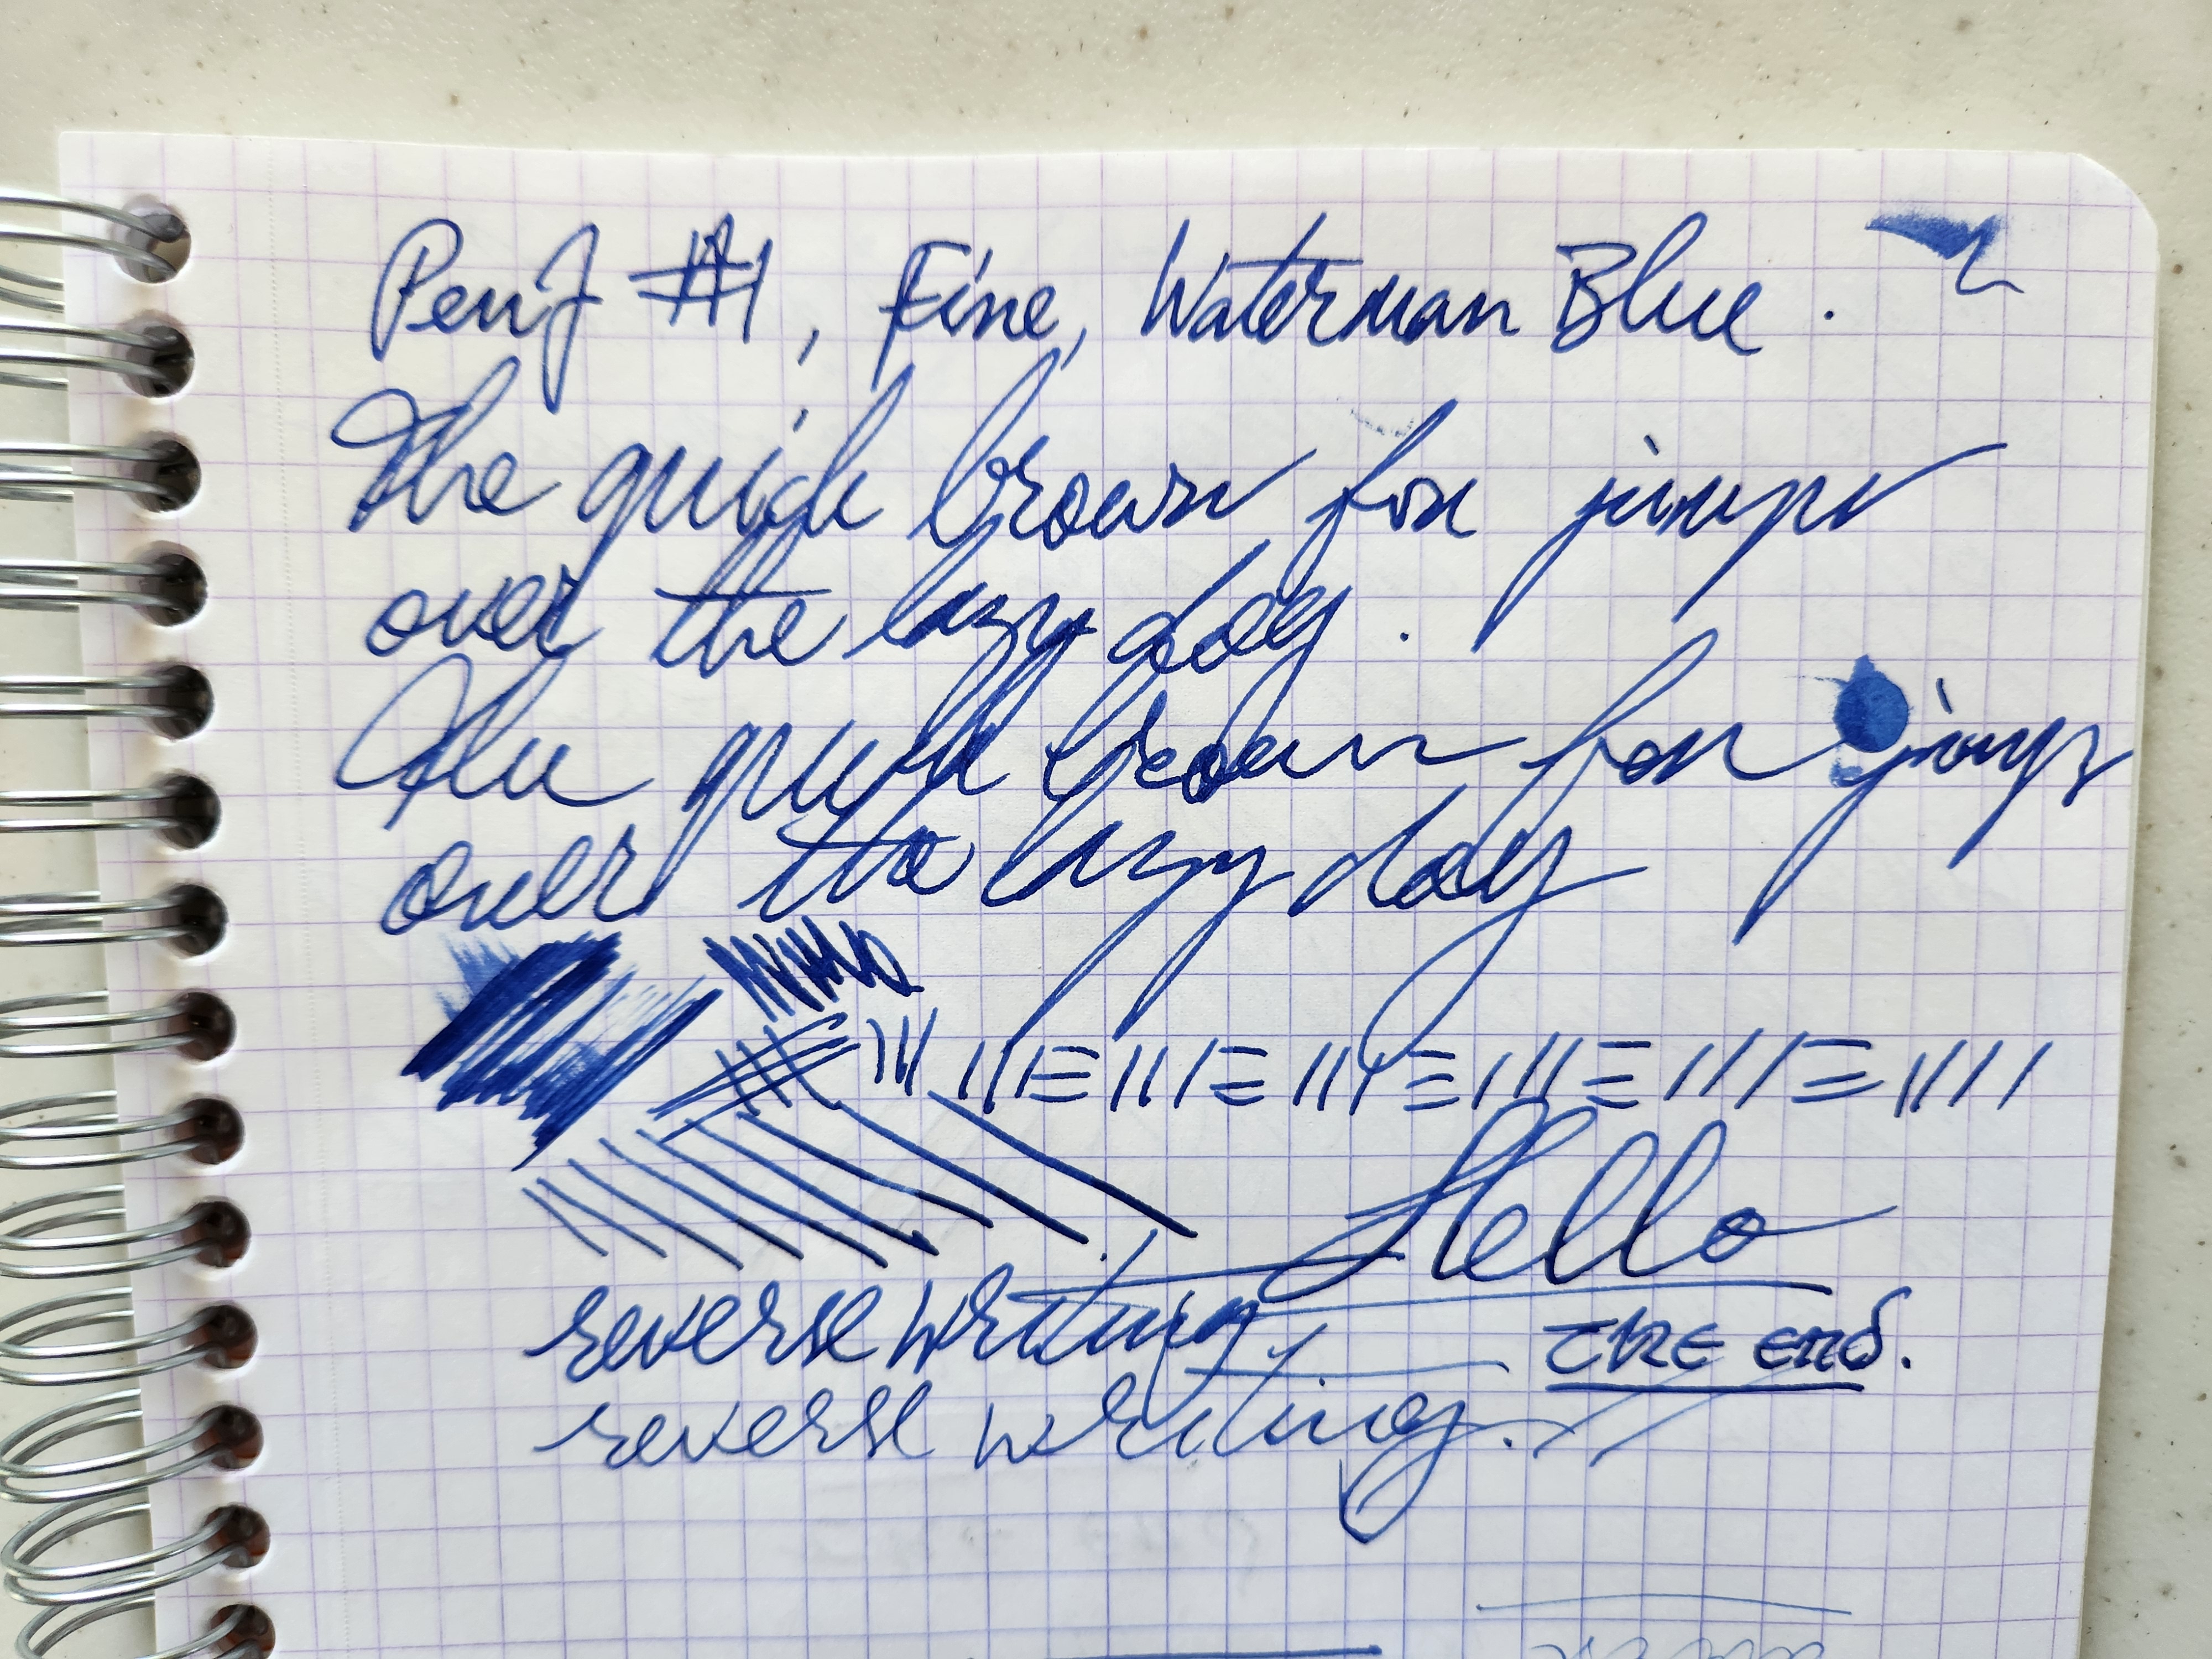 #1, Fine, Waterman Blue.
The quick brown fox jumps
over the lazy dog.
The quick brown fox jumps
over the lazy dog
Hello
reverse writing.
The end.
reverse writing.